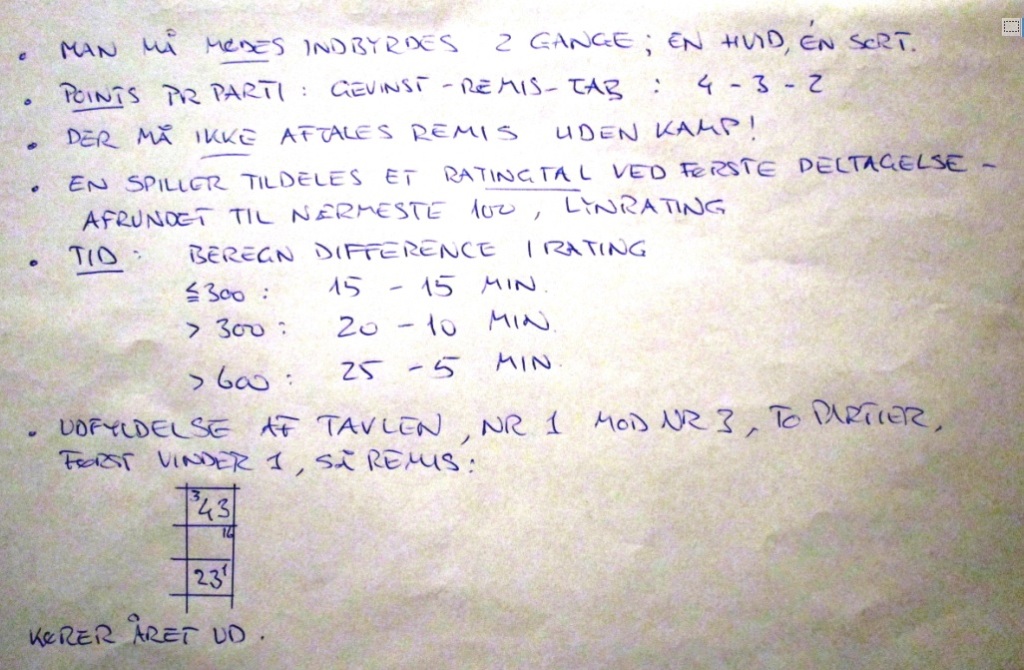 • MAN MÅ MØDES INDBYRDES 2 GANGE; ÉN HVID, ÉN SORT.
• POINTS PR PARTI: GEVINST-REMIS-TAB : 4-3-2
• DER MÅ IKKE AFTALES REMIS UDEN KAMP!
• EN SPILLER TILDELES ET RATINGTAL VED FØRSTE DELTAGELSE -
AFRUNDET TIL NÆRMESTE 100, LYNRATING
• TID: BEREGN DIFFERENCE I RATING
≦300: 15 - 15 MIN.
> 300: 20 - 10 MIN.
> 600: 25 - 5 MIN.
• UDFYLDELSE AF TAVLEN, NR 1 MOD NR 3, TO PARTIER,
FØRST VINDER 1, SÅ REMIS:
3 43
16
23 1
KØRER ÅRET UD.